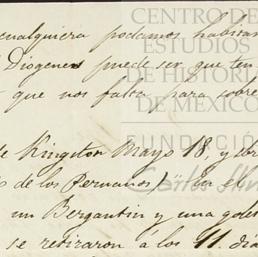 CENTRO DE
ESTUDIOS
DE HISTORIA
DE MÉXICO
FUNDACIÓN
Carlos
cualquiera podamos habitar
Diogenes puede ser que ten
que nos falta para sobre
de Kingston Mayo 18, y
de los Peruanos) "En el
un Bergantin y una gole
se retiraron á los 11 dia